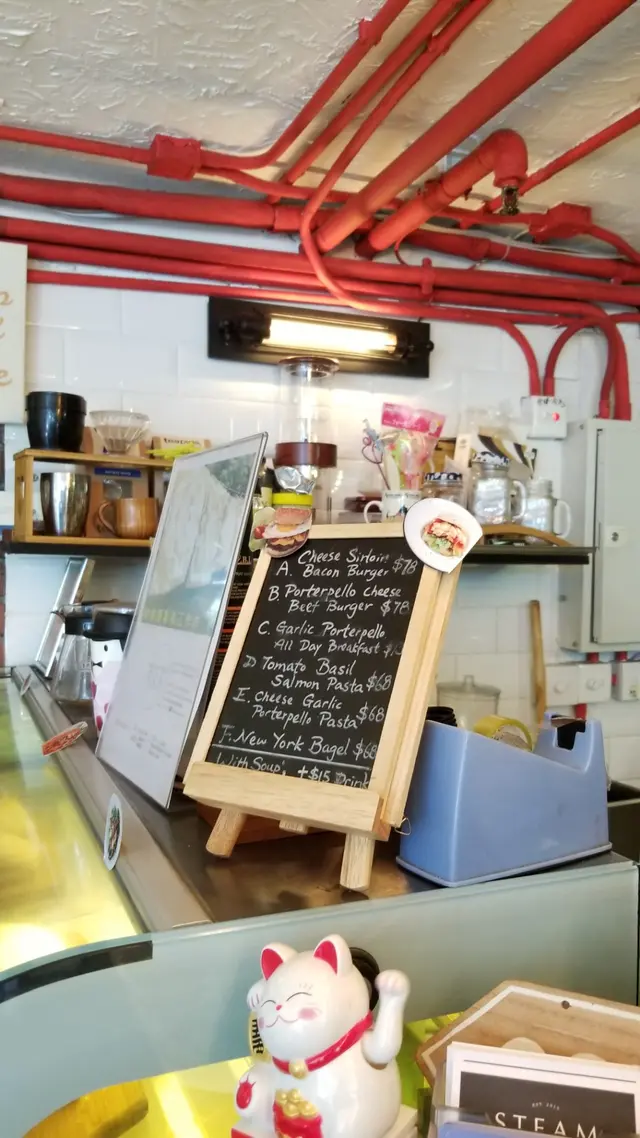 A. Cheese Sirloin
Bacon Burger $78
B Porterpello Cheese
Beef Burger $78
C. Garlic Porterpello
All Day Breakfast
D Tomato Basil
Salmon Pasta $68
E. Cheese Garlic
Porterpello Pasta $68
F. New York Bagel $68
With Soup, +$15 Drink
STEAM